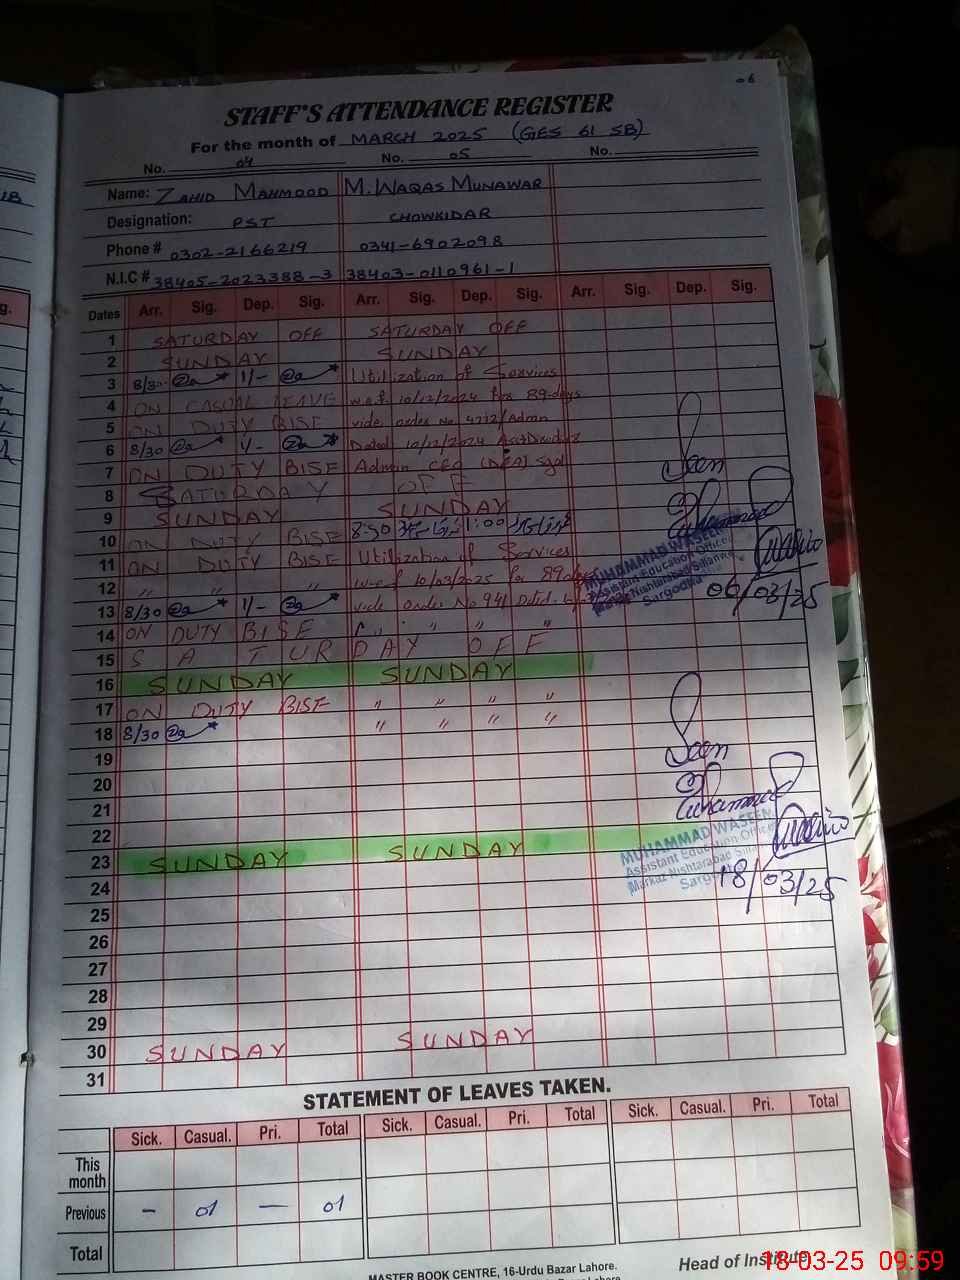 06
STAFF'S ATTENDANCE REGISTER
For the month of MARCH 2025 (GES 61 SB)
No. 04 No. 05 No.
Name: ZAHID MAHMOOD M. WAQAS MUNAWAR
Designation: PST CHOWKIDAR
Phone # 0302-2166219 0341-6902098
N.I.C # 38405-2023388-3 38403-0110961-1
Dates Arr. Sig. Dep. Sig. Arr. Sig. Dep. Sig. Arr. Sig. Dep. Sig.
1 SATURDAY OFF SATURDAY OFF
2 SUNDAY SUNDAY
3 8/30 1/- Utilization of Services
4 ON CASUAL LEAVE w.e.f 10/12/2024 for 89-days
5 ON DUTY BISE vide order No. 4212/Admn
6 8/30 1/- Dated 10/12/2024
7 ON DUTY BISE Admin CEO (DEA) Sgd
8 SATURDAY OFF
9 SUNDAY SUNDAY
10 ON DUTY BISE 8:30 1:00
11 ON DUTY BISE Utilization of Services
12 " " " w.e.f 10/03/2025 for 89-days
13 8/30 1/- vide order No 941 Dated
14 ON DUTY BISE " " " "
15 SATURDAY OFF
16 SUNDAY SUNDAY
17 ON DUTY BISE " " " "
18 8/30 " " " "
19
20
21
22
23 SUNDAY SUNDAY
24
25
26
27
28
29
30 SUNDAY SUNDAY
31
Seen
MUHAMMAD WASEEM
Assistant Education Officer
Markaz Nishtarabad Sillanwali
Sargodha
06/03/25
Seen
MUHAMMAD WASEEM
Assistant Education Officer
Markaz Nishtarabad
Sargodha
18/03/25
STATEMENT OF LEAVES TAKEN.
Sick. Casual. Pri. Total Sick. Casual. Pri. Total Sick. Casual. Pri. Total
This month
Previous - 01 - 01
Total
MASTER BOOK CENTRE, 16-Urdu Bazar Lahore.
Head of Institute
18-03-25 09:59